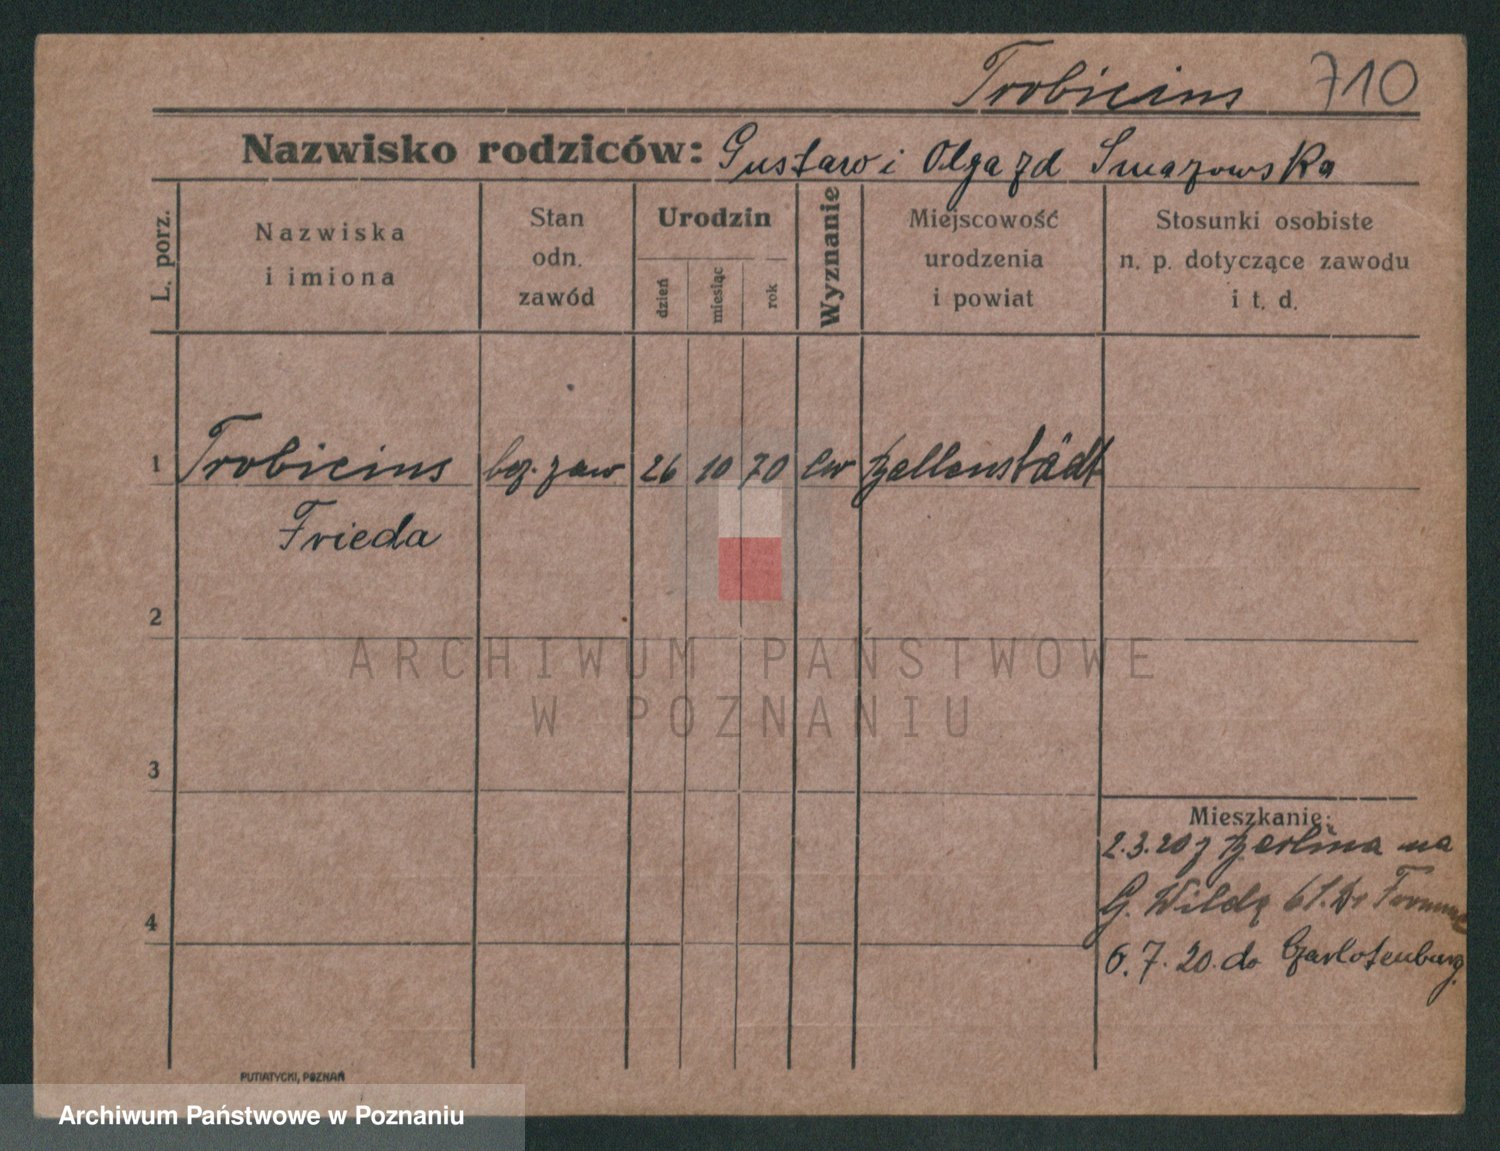 Trobicius 710
Nazwisko rodziców: Gustaw i Olga zd Smazowska
L. porz.
Nazwiska
i imiona
Stan
odn.
zawód
Urodzin
dzień
miesiąc
rok
Wyznanie
Miejscowość
urodzenia
i powiat
Stosunki osobiste
n. p. dotyczące zawodu
i t. d.
1 Trobicius bez. zaw 26 10 70 ew
Frieda
2
ARCHIWUM PAŃSTWOWE
W POZNANIU
3
Mieszkanie:
2.3.20 z Berlina na
G. Wildę 61.
4
6.7.20. do Czarlotenburg.
PUTIATYCKI, POZNAŃ
Archiwum Państwowe w Poznaniu